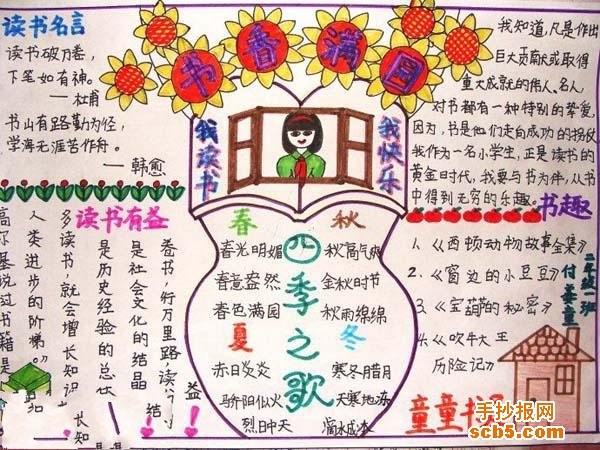 书香满园
读书名言
读书破万卷，
下笔如有神。
——杜甫
书山有路勤为径，
学海无涯苦作舟。
——韩愈
我读书
我快乐
我知道，凡是作出
巨大贡献或取得
重大成就的伟人、名人
对书都有一种特别的挚爱，
因为，书是他们走向成功的拐杖
我作为一名小学生，正是读书的
黄金时代，我要与书为伴，从书
中得到无穷的乐趣。
读书有益
卷书，行万里路，读
是社会文化的结晶
是历史经验的总
多读书，就会增长知识
人类进步的阶梯。
高尔基说过书籍是
益
结
长知
四季之歌
春
春光明媚
春意盎然
春色满园
夏
赤日炎炎
骄阳似火
烈日中天
秋
秋高气爽
金秋时节
秋雨绵绵
冬
寒冬腊月
天寒地冻
滴水成冰
书趣
1、《西顿动物故事全集》
2、《窗边的小豆豆》
3、《宝葫的秘密》
4、《吹牛大王
历险记》
二年级一班
童童书
手抄报网
scb5.com